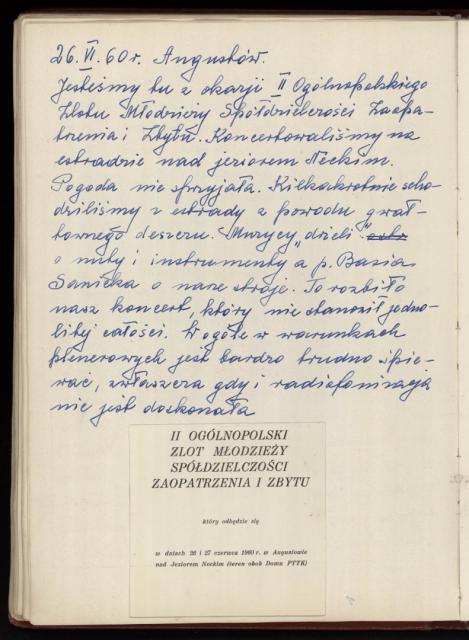 26.VI.60r. Augustów.
Jesteśmy tu z okazji II Ogólnopolskiego
Zlotu Młodzieży Spółdzielczości Zaopa-
trzenia i Zbytu. Koncertowaliśmy na
estradzie nad jeziorem Neckim.
Pogoda nie sprzyjała. Kilkakrotnie scho-
dziliśmy z estrady z powodu gwał-
townego deszczu. Muzycy „drżeli"
o nuty i instrumenty a p. Basia
Sanicka o nasze stroje. To rozbiło
nasz koncert, który nie stanowił jedno-
litej całości. W ogóle w warunkach
plenerowych jest bardzo trudno śpie-
wać, zwłaszcza gdy i radiofonizacja
nie jest doskonała
II OGÓLNOPOLSKI
ZLOT MŁODZIEŻY
SPÓŁDZIELCZOŚCI
ZAOPATRZENIA I ZBYTU
który odbędzie się
w dniach 26 i 27 czerwca 1960 r. w Augustowie
nad Jeziorem Neckim (teren obok Domu PTTK)